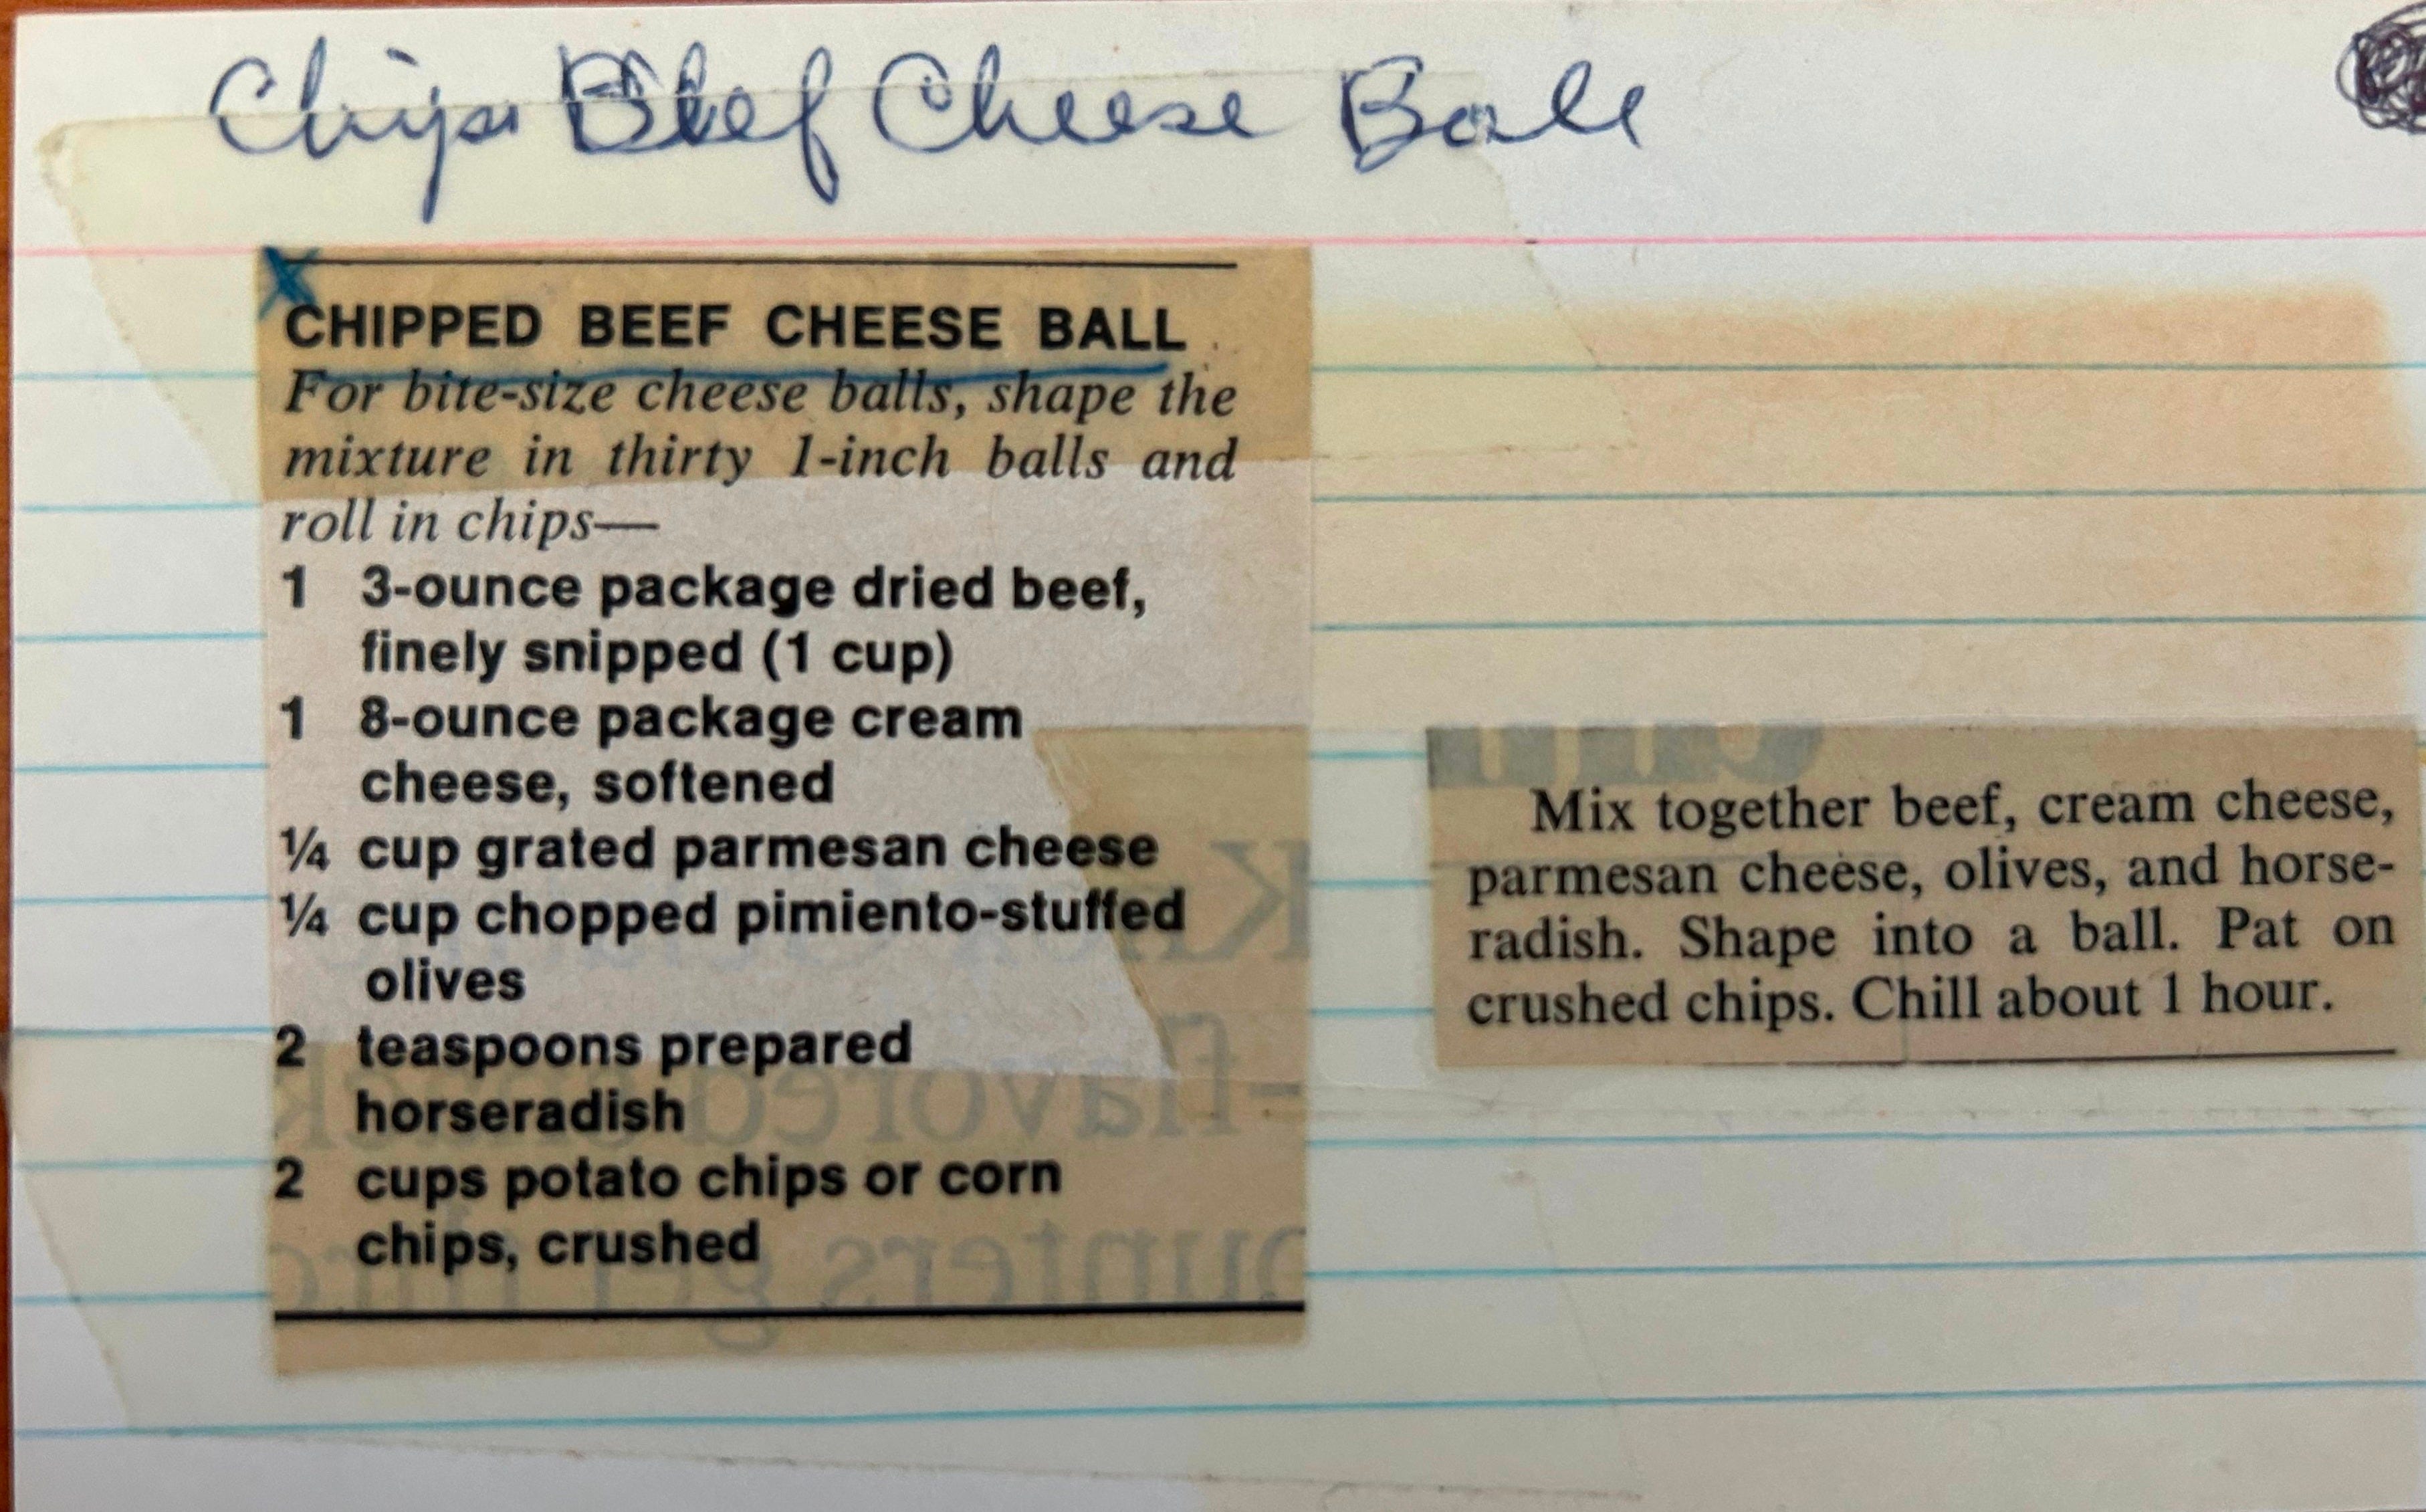 Chips Beef Cheese Ball
CHIPPED BEEF CHEESE BALL
For bite-size cheese balls, shape the
mixture in thirty 1-inch balls and
roll in chips—
1 3-ounce package dried beef,
finely snipped (1 cup)
1 8-ounce package cream
cheese, softened
¼ cup grated parmesan cheese
¼ cup chopped pimiento-stuffed
olives
2 teaspoons prepared
horseradish
2 cups potato chips or corn
chips, crushed
Mix together beef, cream cheese,
parmesan cheese, olives, and horse-
radish. Shape into a ball. Pat on
crushed chips. Chill about 1 hour.